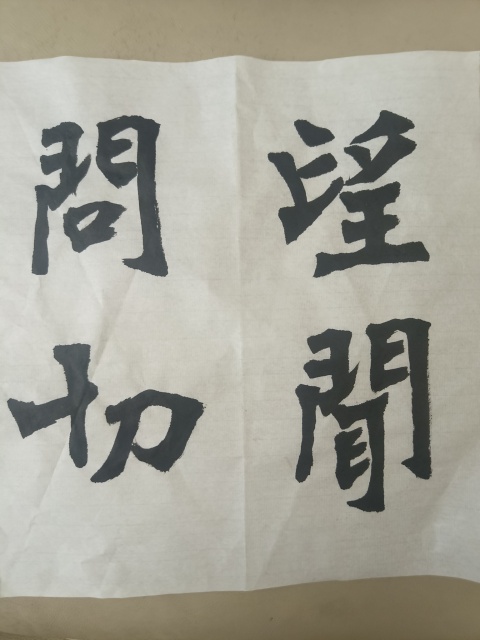 望聞
問切